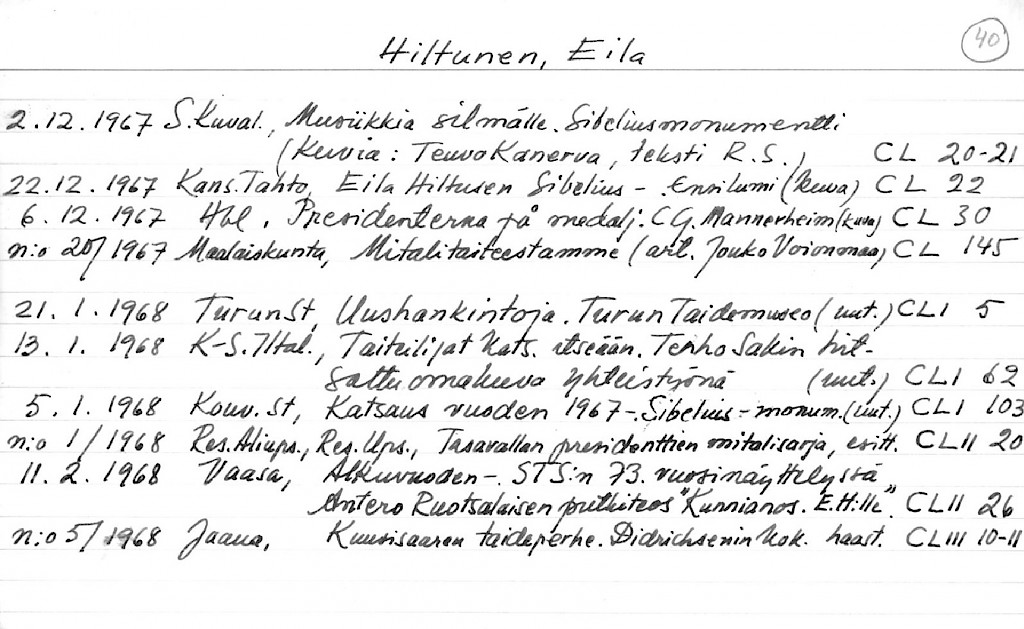 40
Hiltunen, Eila
2.12.1967 S.Kuval., Musiikkia silmälle. Sibeliusmonumentti
(Kuvia: Teuvo Kanerva, teksti R.S.) CL 20-21
22.12.1967 Kans.Tahto, Eila Hiltusen Sibelius - Ensilumi (kuva) CL 22
6.12.1967 Hbl., Presidenterna på medalj: C.G. Mannerheim (kuva) CL 30
n:o 20/1967 Maalaiskunta, Mitalitaiteestamme (art. Jouko Voionmaa) CL 145
21.1.1968 Turun St, Uushankintoja. Turun Taidemuseo (uut.) CLI 5
13.1.1968 K-S.Iltal., Taiteilijat kats. itseään. Terho Sakin hit-
sattu omakuva yhteistyönä (uut.) CLI 62
5.1.1968 Kouv. St, Katsaus vuoden 1967-. Sibelius-monum. (uut.) CLI 103
n:o 1/1968 Res.Aliups., Res.Ups., Tasavallan presidenttien mitalisarja, esitt. CLII 20
11.2.1968 Vaasa, Alkuvuoden -. STS:n 73. vuosinäyttelystä
Antero Ruotsalaisen putkiteos "Kunnianos. E.H:lle". CLII 26
n:o 5/1968 Jaana, Kuusisaaren taideperhe. Didrichsenin kok. haast. CLIII 10-11